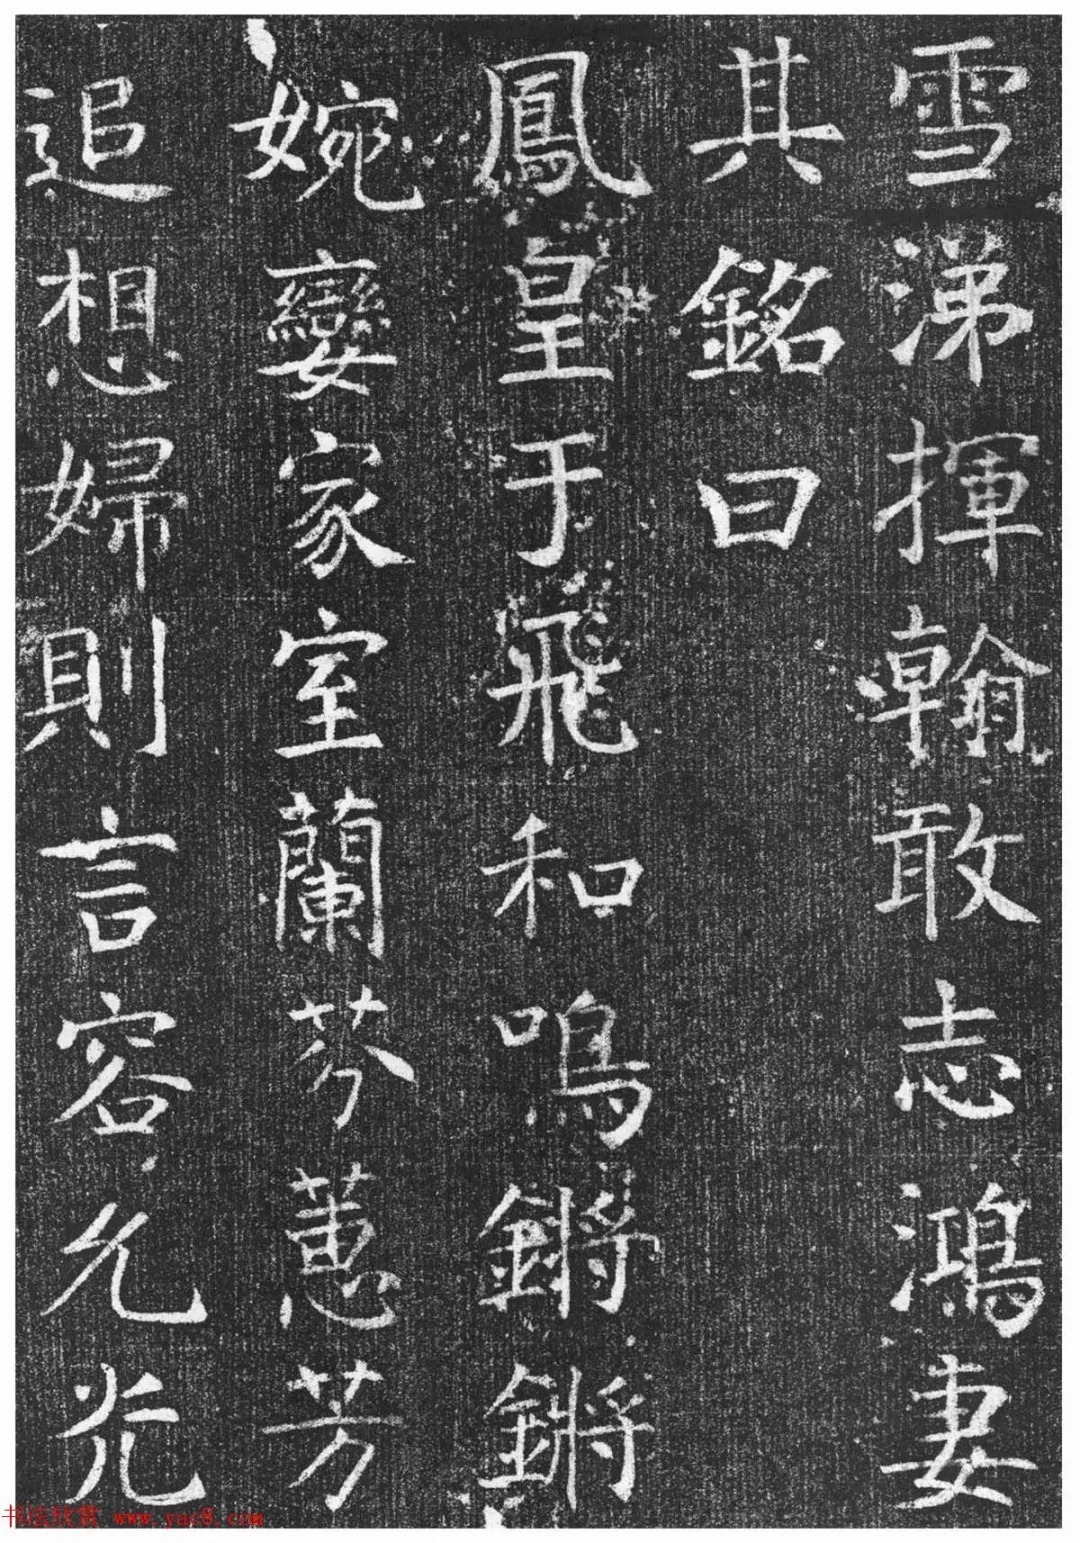 雪涕揮翰敢志鴻妻
其銘曰
鳳皇于飛和鳴鏘鏘
婉孌家室蘭芬蕙芳
追想婦則言容允光
www.yac8.com